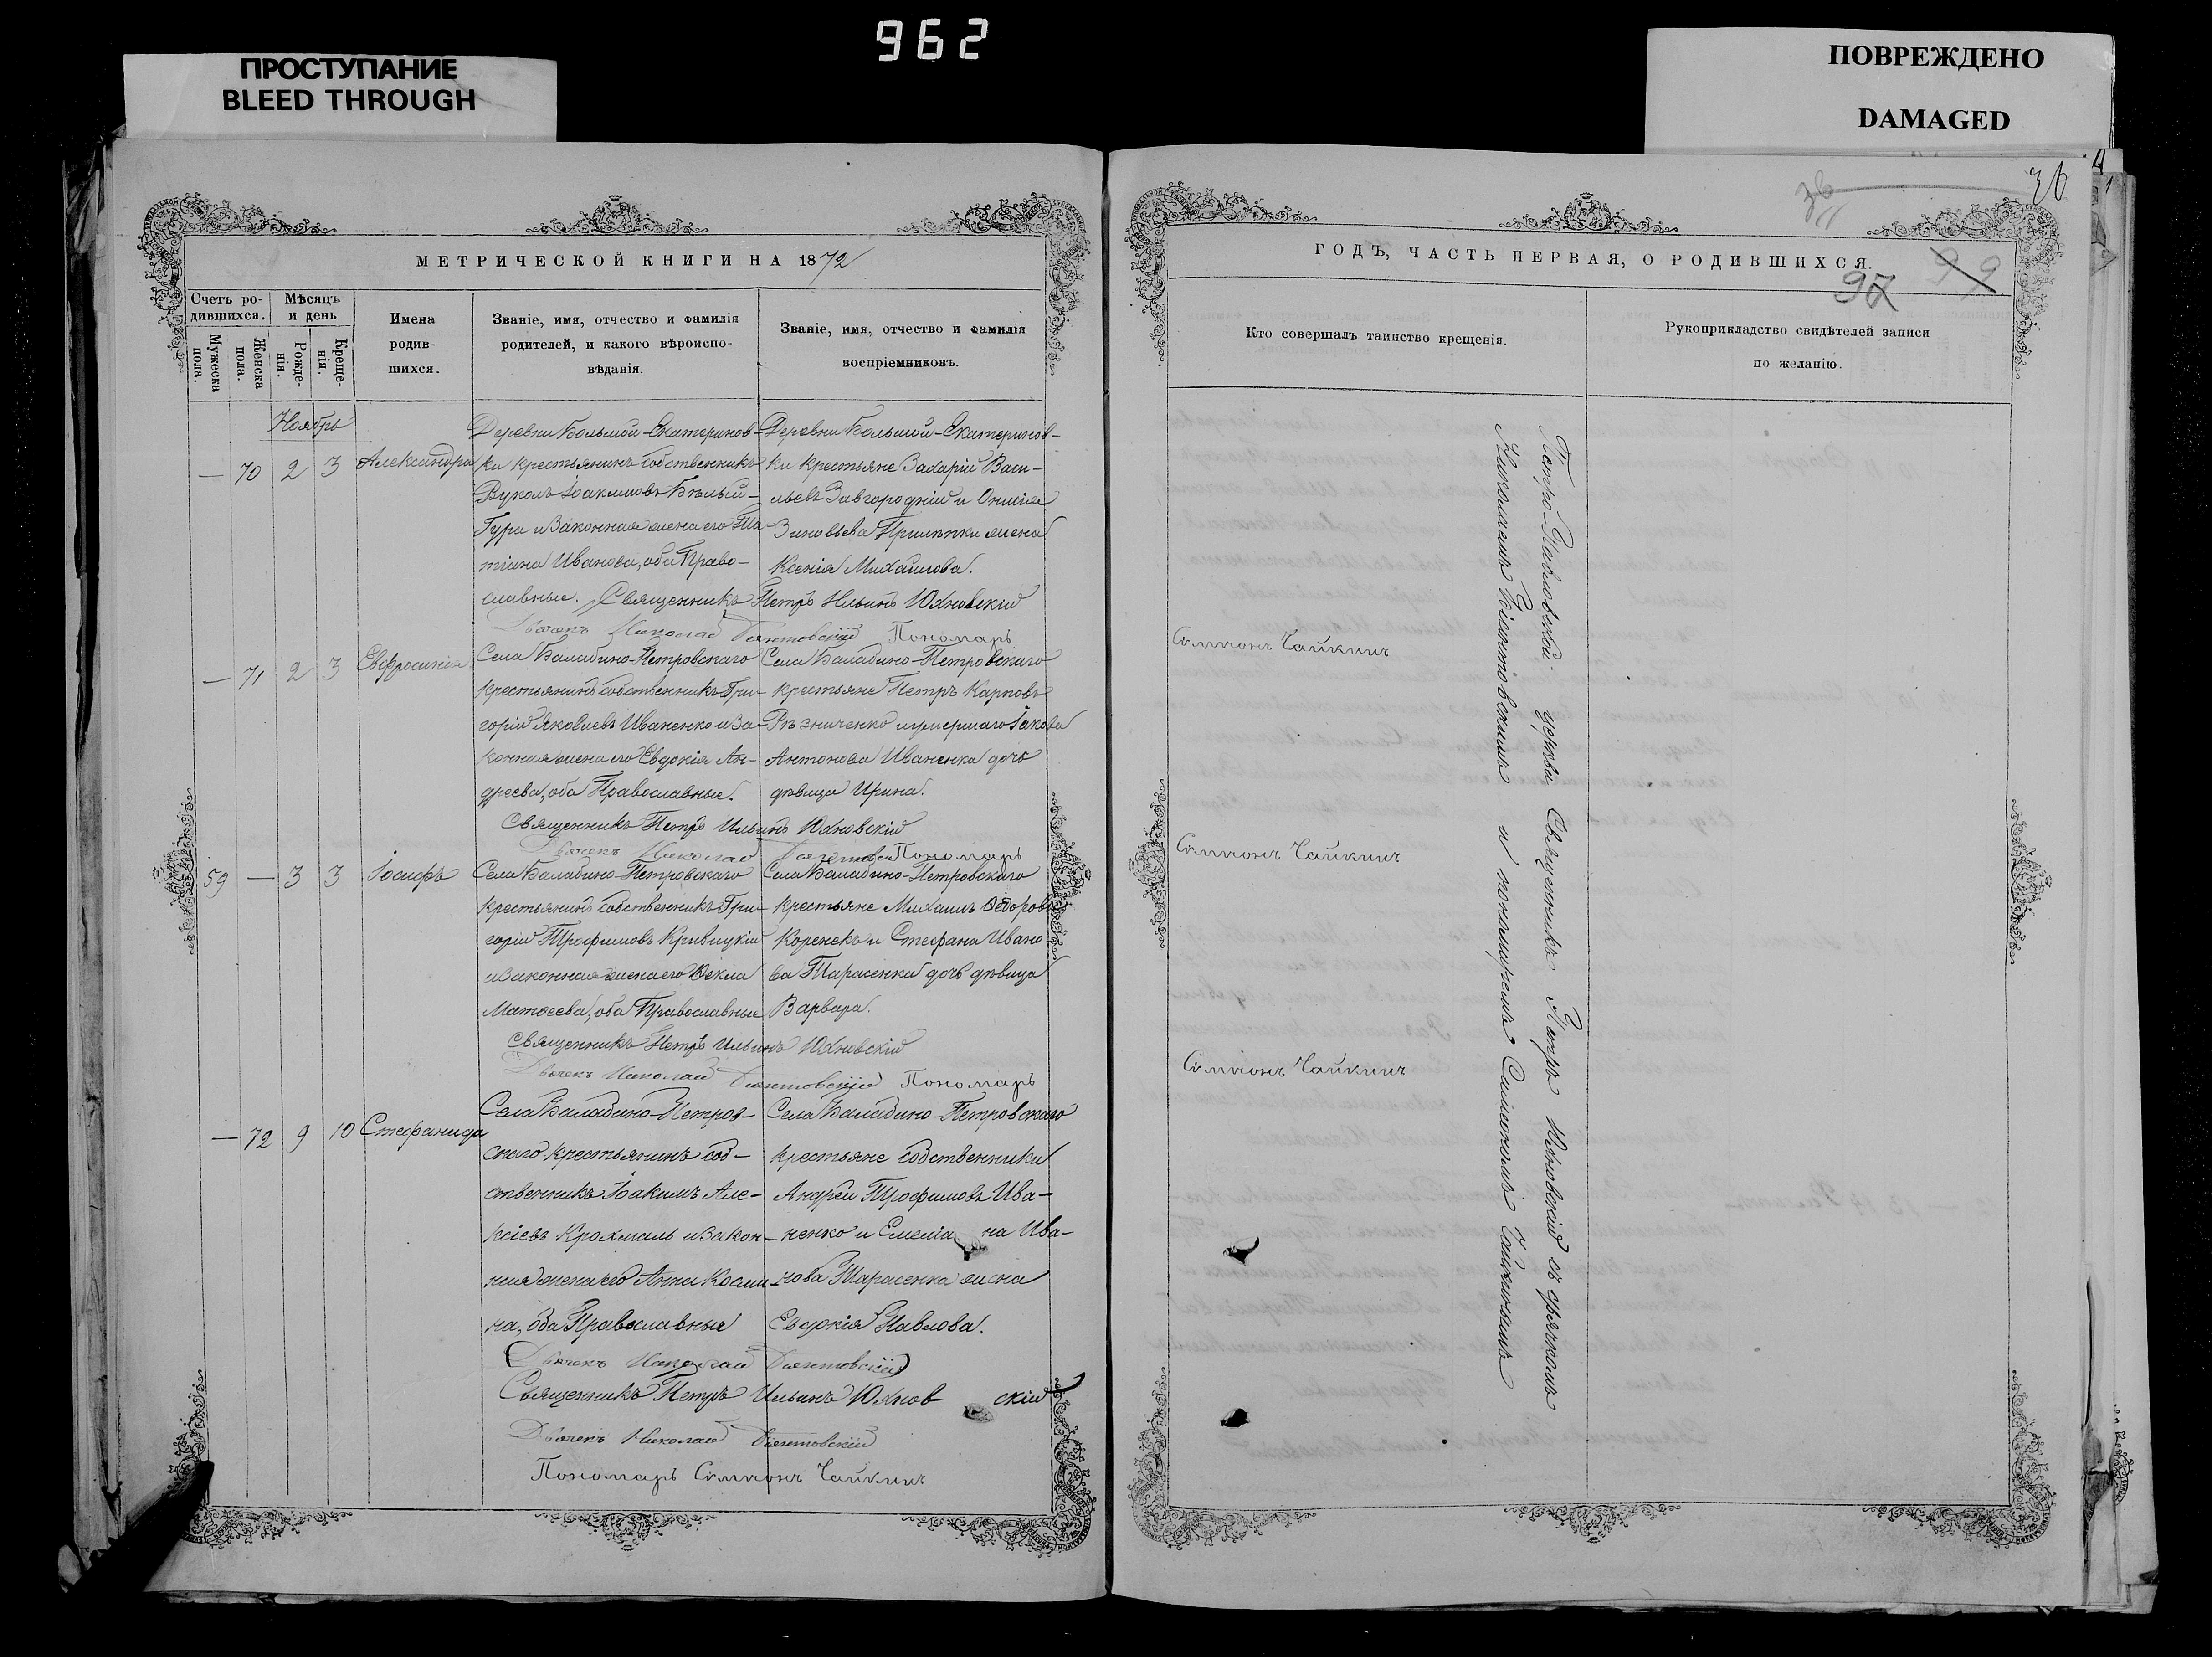 962
ПРОСТУПАНИЕ
BLEED THROUGH
ПОВРЕЖДЕНО
DAMAGED
36
36
МЕТРИЧЕСКОЙ КНИГИ НА 1872
Счетъ ро-
дившихся.
Мужеска
пола.
Женска
пола.
Мѣсяцъ
и день
Рожде-
нія.
Креще-
нія.
Имена
родив-
шихся.
Званіе, имя, отчество и фамилія
родителей, и какого вѣроиспо-
вѣданія.
Званіе, имя, отчество и фамилія
воспріемниковъ.
Ноябрь
— 70 2 3 Александра
Деревни Большой-Екатеринов-
ки крестьянинъ собственникъ
Вуколъ Іоакимовъ Бѣлый-
Гура и законная жена его Та-
тіана Иванова, оба Право-
славные.
Деревни Большой-Екатеринов-
ки крестьяне Захарій Васи-
льевъ Завгородній и Онисія
Зиновьева Прилѣпки жена
Ксенія Михайлова.
Священникъ Петръ Ильинъ Юхновскій
Дьячекъ Николай Гіантовскій Пономарь
— 71 2 3 Евфросинія
Села Балабино-Петровскаго
крестьянинъ собственникъ Гри-
горій Яковлевъ Иваненко и за-
конная жена его Евдокія Ан-
дреева, оба Православные.
Села Балабино-Петровскаго
крестьяне Петръ Карповъ
Рѣзниченко и умершаго Іакова
Антонова Иваненка дочь
дѣвица Ирина.
Священникъ Петръ Ильинъ Юхновскій
Дьячекъ Николай Гіантовскій Пономарь
59 — 3 3 Іосифъ
Села Балабино-Петровскаго
крестьянинъ собственникъ Гри-
горій Трофимовъ Кривицкій
и законная жена его Ѳекла
Матѳеева, оба Православные
Села Балабино-Петровскаго
крестьяне Михаилъ Ѳедоровъ
Коренекъ и Стефана Ивано-
ва Тарасенка дочь дѣвица
Варвара.
Священникъ Петръ Ильинъ Юхновскій
Дьячекъ Николай Гіантовскій Пономарь
— 72 9 10 Стефанида
Села Балабино-Петров-
скаго крестьянинъ соб-
ственникъ Іоакимъ Але-
ксіевъ Крохмаль и закон-
ная жена его Анна Косми-
на, оба Православные
Села Балабино-Петровскаго
крестьяне собственники
Андрей Трофимовъ Ива-
ненко и Емеліана Ива-
нова Тарасенка жена
Евдокія Павлова.
Дьячекъ Николай Гіантовскій
Священникъ Петръ Ильинъ Юхновскій
Дьячекъ Николай Гіантовскій
Пономарь Симеонъ Чайкинъ
ГОДЪ, ЧАСТЬ ПЕРВАЯ, О РОДИВШИХСЯ.
99
97
Кто совершалъ таинство крещенія.
Рукоприкладство свидѣтелей записи
по желанію.
Симеонъ Чайкинъ
Симеонъ Чайкинъ
Симеонъ Чайкинъ
Петро-Павловской церкви Священникъ Петръ Юхновскій съ дьячкомъ
Николаемъ Гіантовскимъ и пономаремъ Симеономъ Чайкинымъ